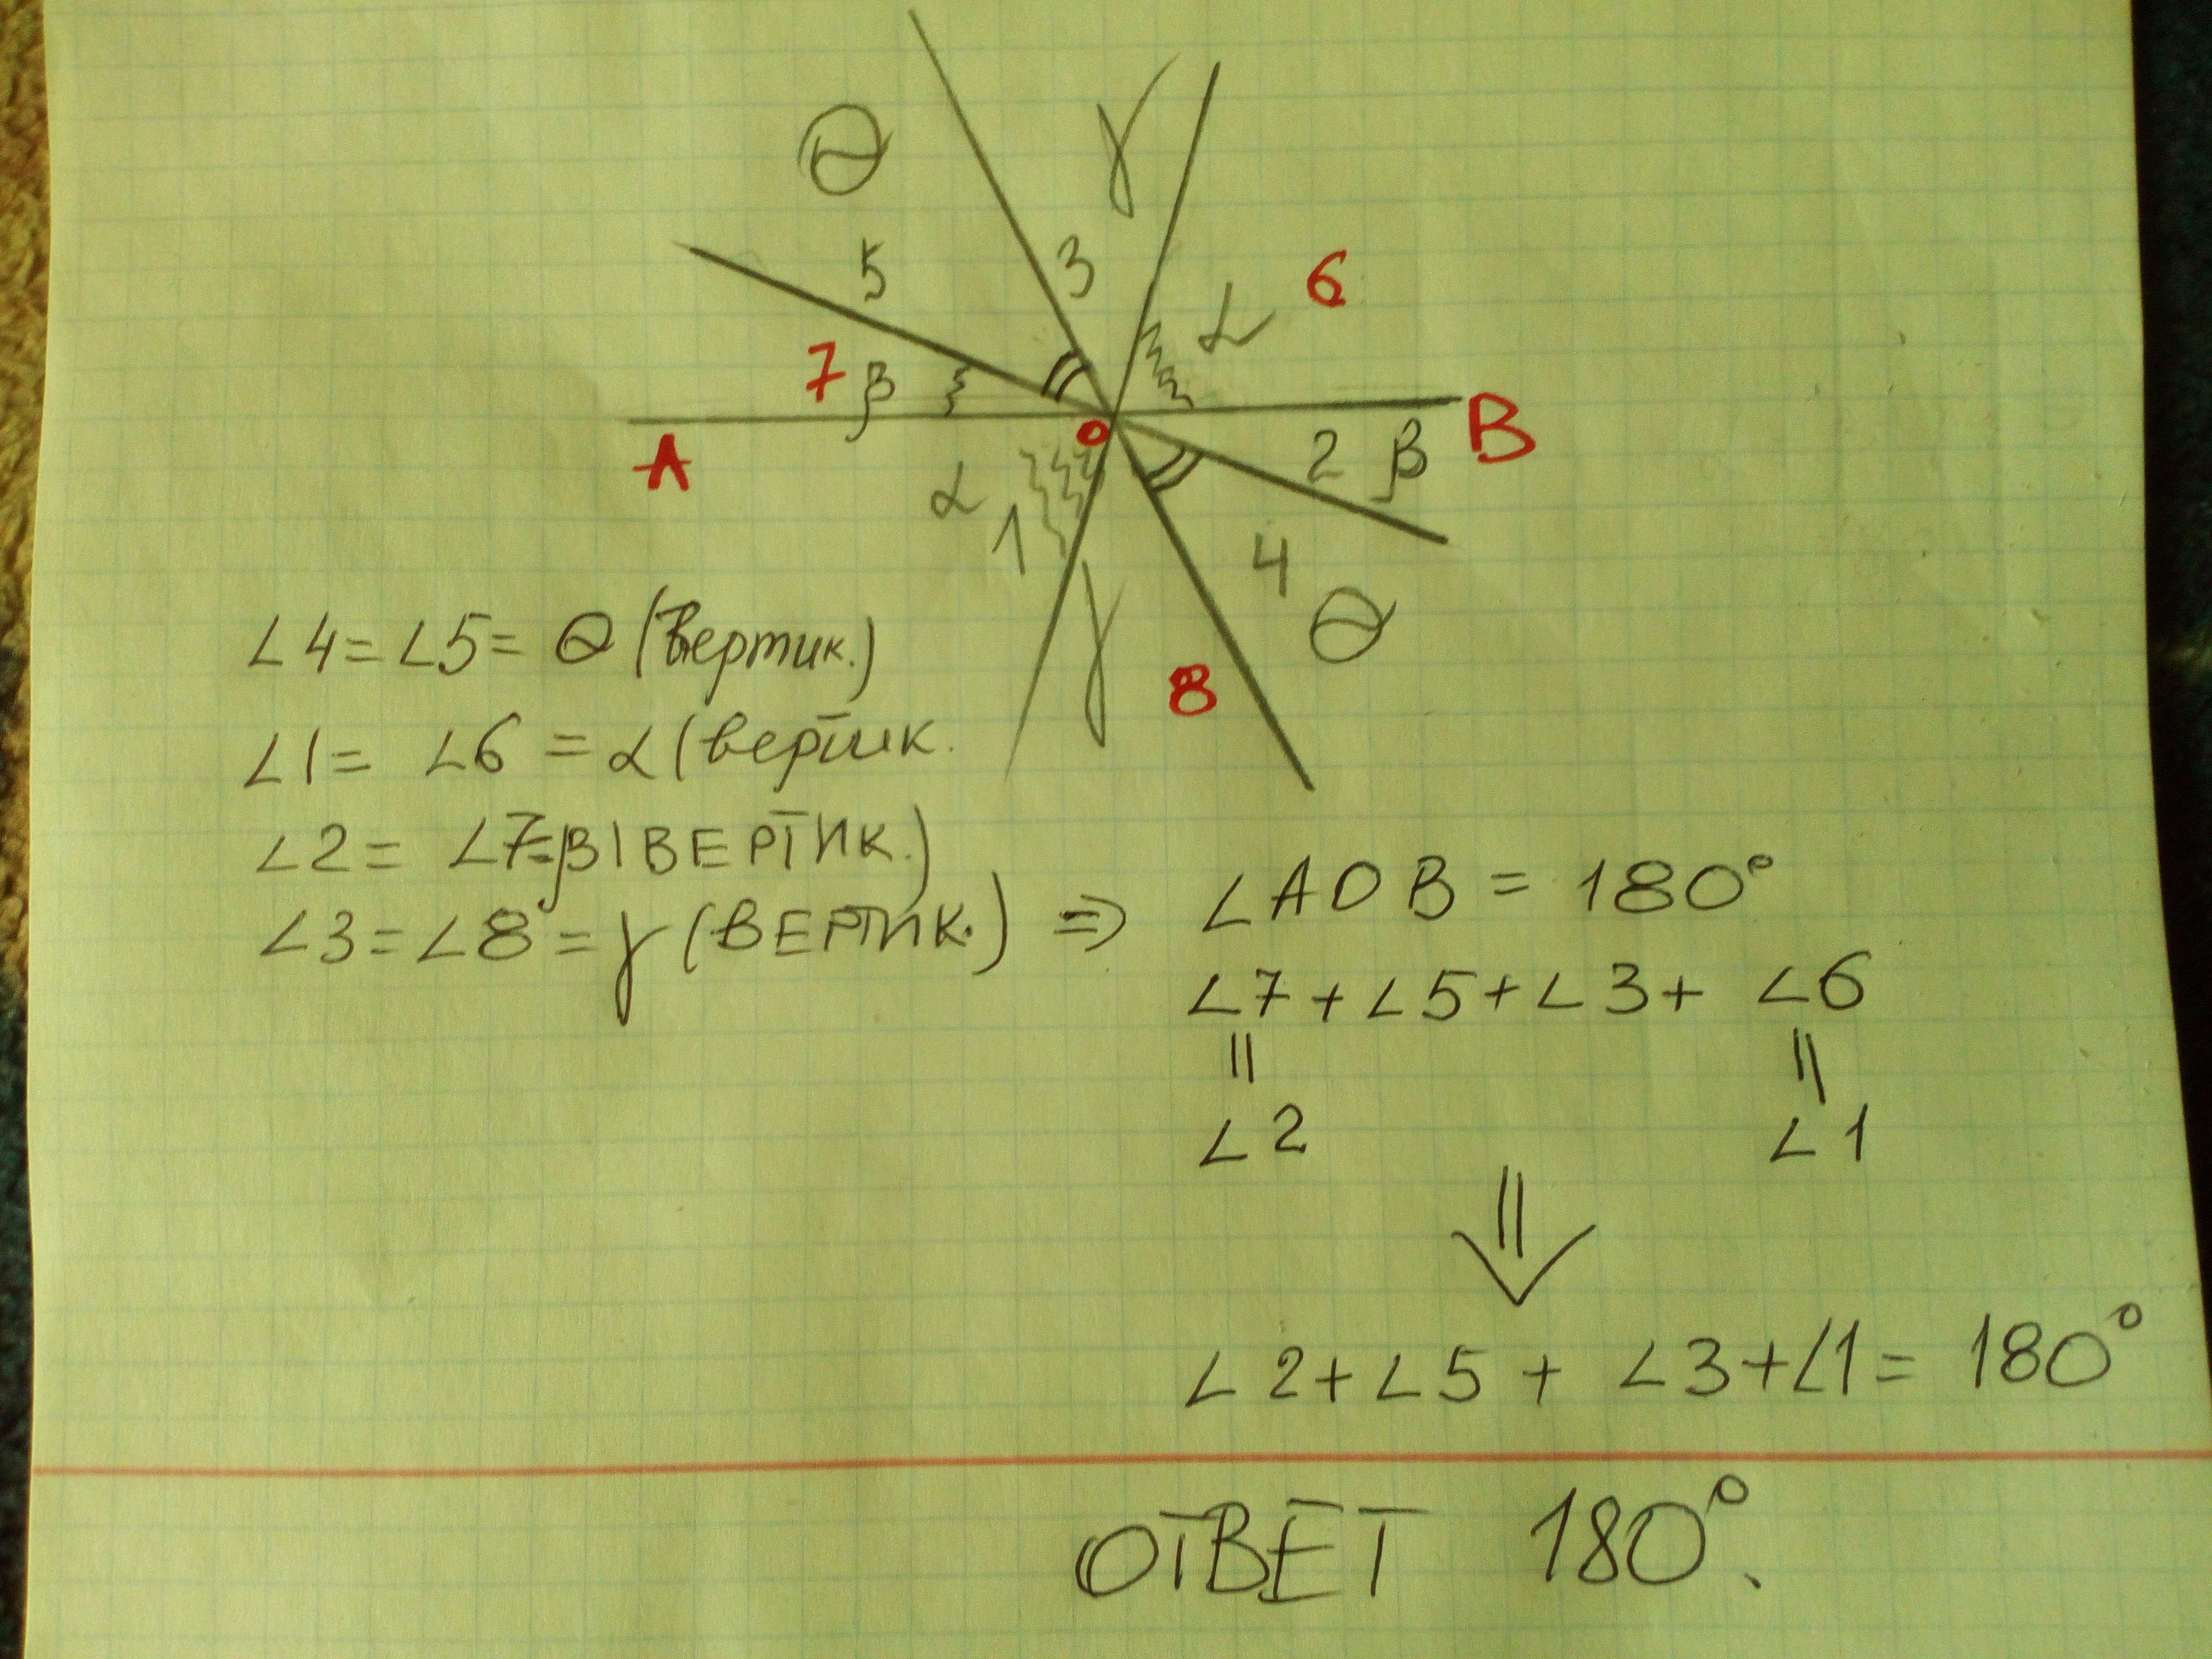 θ γ
5 3 6
α
7 β
A O B
2 β
α 1
4
θ
γ 8
∠4=∠5= θ (вертик.)
∠1= ∠6 = α (вертик.
∠2= ∠7=β (ВЕРТИК.)
∠3=∠8=γ (ВЕРТИК.) ⇒ ∠AOB = 180°
∠7+∠5+∠3+ ∠6
|| ||
∠2 ∠1
⇓
∠2+∠5 + ∠3+∠1= 180°
ОТВЕТ 180°.